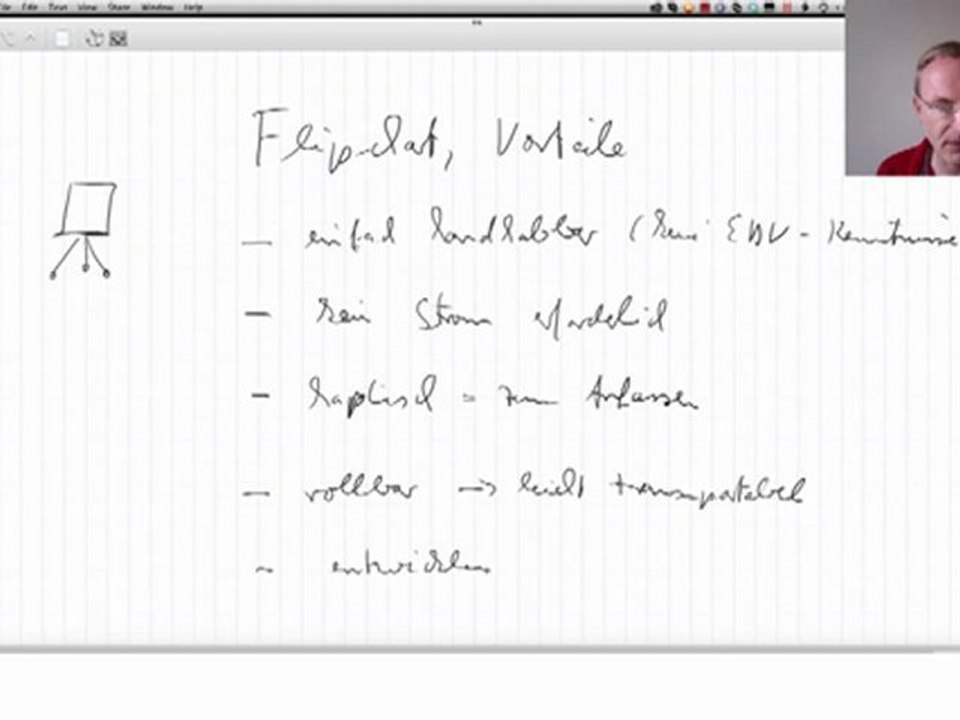 File Edit Text View Share Window Help
Flipchart, Vorteile
– einfach handhabbar (keine EDV - Kenntnisse
– kein Strom erforderlich
– haptisch = zum Anfassen
– rollbar → leicht transportabel
– entwickeln